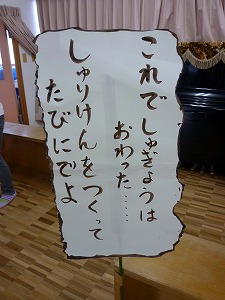 これでしゅぎょうは
おわった……
しゅりけんをつくって
たびにでよ